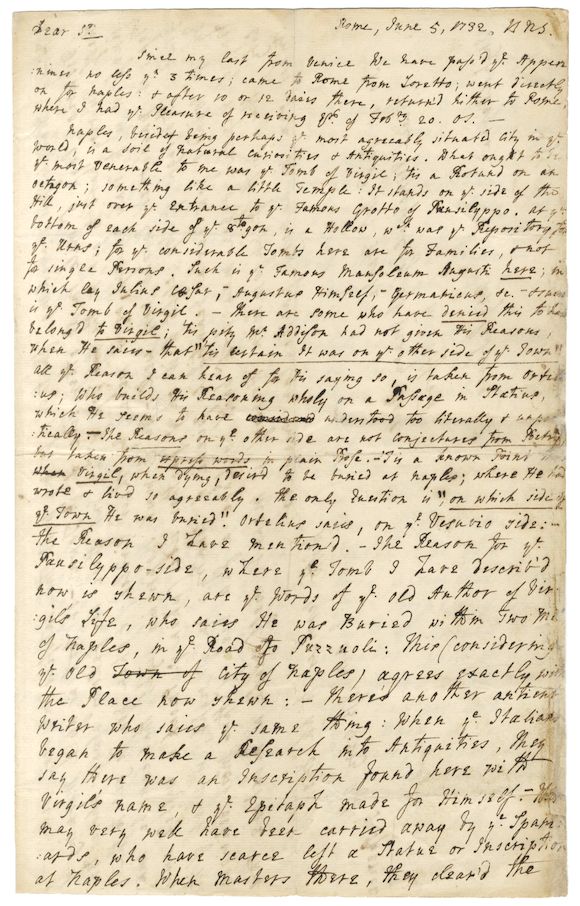 Dear Sr.
Rome, June 5, 1732, N S.
Since my last from Venice We have pass'd ye. Appen-
:nines no less yn. 3 times; came to Rome from Loretto; went directly
on for Naples: & after 10 or 12 daies there, return'd hither to Rome;
where I had ye. Pleasure of receiving of Febry. 20. OS. —
Naples, besides being perhaps ye. most agreeably situated City in ye.
world, is a soil of Natural curiosities & Antiquities. What ought to be
ye. most Venerable to me was ye. Tomb of Virgil; 'tis a Rotund on an
octagon; something like a little Temple: It stands on ye. side of the
Hill, just over ye. Entrance to ye. Famous Grotto of Pausilyppo. at ye.
bottom of each side of ye. 8gon is a Hollow, wch. was ye. Repository for
ye. Urns; for ye. considerable Tombs here are for Families, & not
for single Persons. Such is ye. Famous Mausoleum Augusti here; in
which lay Julius Cæsar, – Augustus Himself, – Germanicus, &c. – & such
is ye. Tomb of Virgil. – there are some who have denied this to have
belong'd to Virgil; 'tis pity Mr. Addison had not given His Reasons
when He saies – that "'tis certain It was on ye. other side of ye. Town"
all ye. Reason I can hear of for His saying so, is taken from Orteli-
:us; Who builds His Reasoning wholy on a Passage in Statius,
which He seems to have understood too literally & unpoe-
:tically. – The Reasons on ye. other side are not conjectures from Poetry,
but taken from express words in plain Prose. – 'Tis a known Point that
Virgil, when dying, desir'd to be buried at Naples; where He had
wrote & liv'd so agreeably. the only Question is, "on which side of
ye. Town He was buried". Ortelius saies, on ye. Vesuvio side: –
the Reason I have mention'd. – The Reason for ye.
Pausilyppo-side, where ye. Tomb I have describ'd
now is shewn, are ye. Words of ye. old Author of Vir-
:gil's Life, who saies He was Buried within Two Miles
of Naples, in ye. Road to Puzzuoli: This (considering
ye. old Town of City of Naples) agrees exactly with
the Place now shewn: – there's another antient
Writer who saies ye. same thing: When ye. Italians
began to make a Research into Antiquities, They
say there was an Inscription found here with
Virgil's name, & ye. Epitaph made for Himself. –
may very well have been carried away by ye. Spani-
:ards, who have scarce left a Statue or Inscription
at Naples. When Masters there, they clear'd the